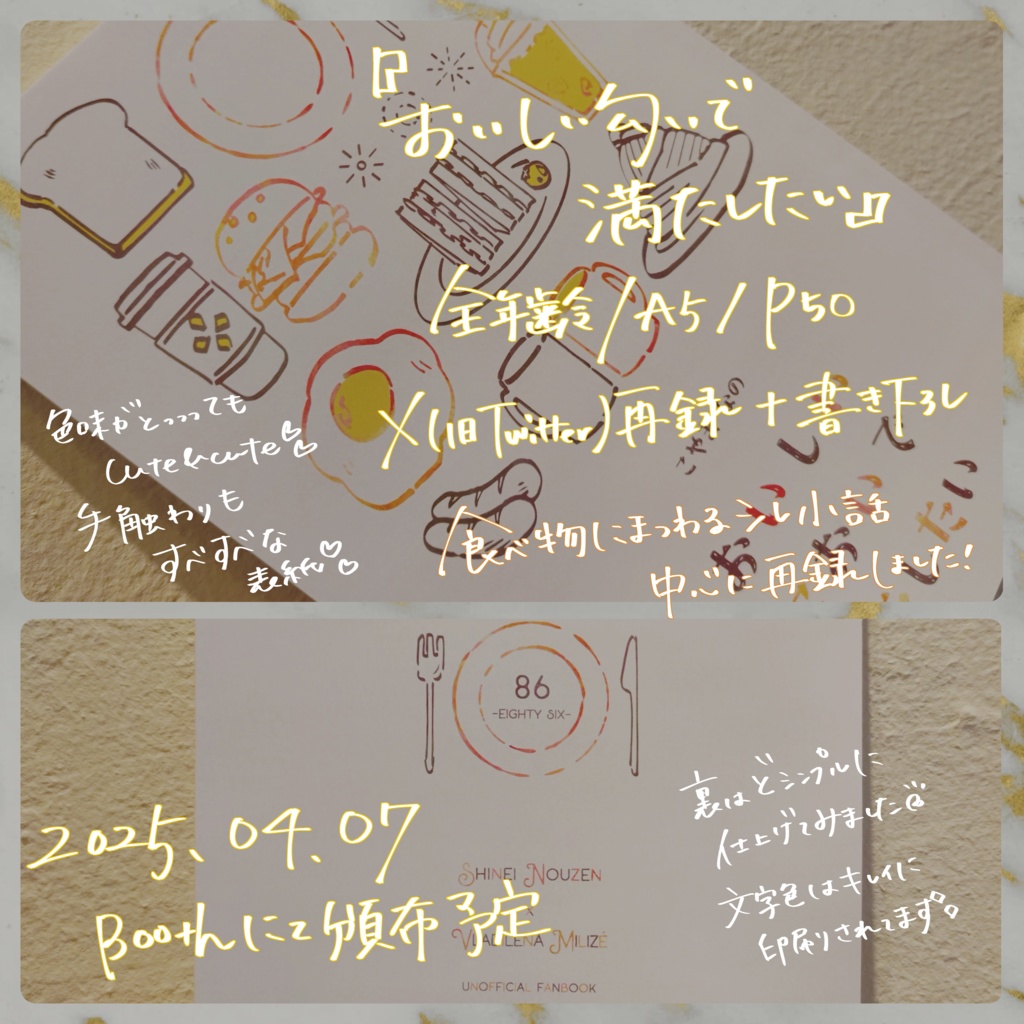 『おいしい匂いで
満たしたい』
全年齢/A5/P50
X(旧Twitter)再録+書き下ろし
色味がとっっっても
cute&cute
手触わりも
すべすべな
表紙
食べ物にまつわるシレ小話
中心に再録しました!
86
-EIGHTY SIX-
裏はどシンプルに
仕上げてみました
文字色はキレイに
印刷されてます。
2025、04、07
Boothにて頒布予定
SHINEI NOUZEN
VLADILENA MILIZÉ
UNOFFICIAL FANBOOK